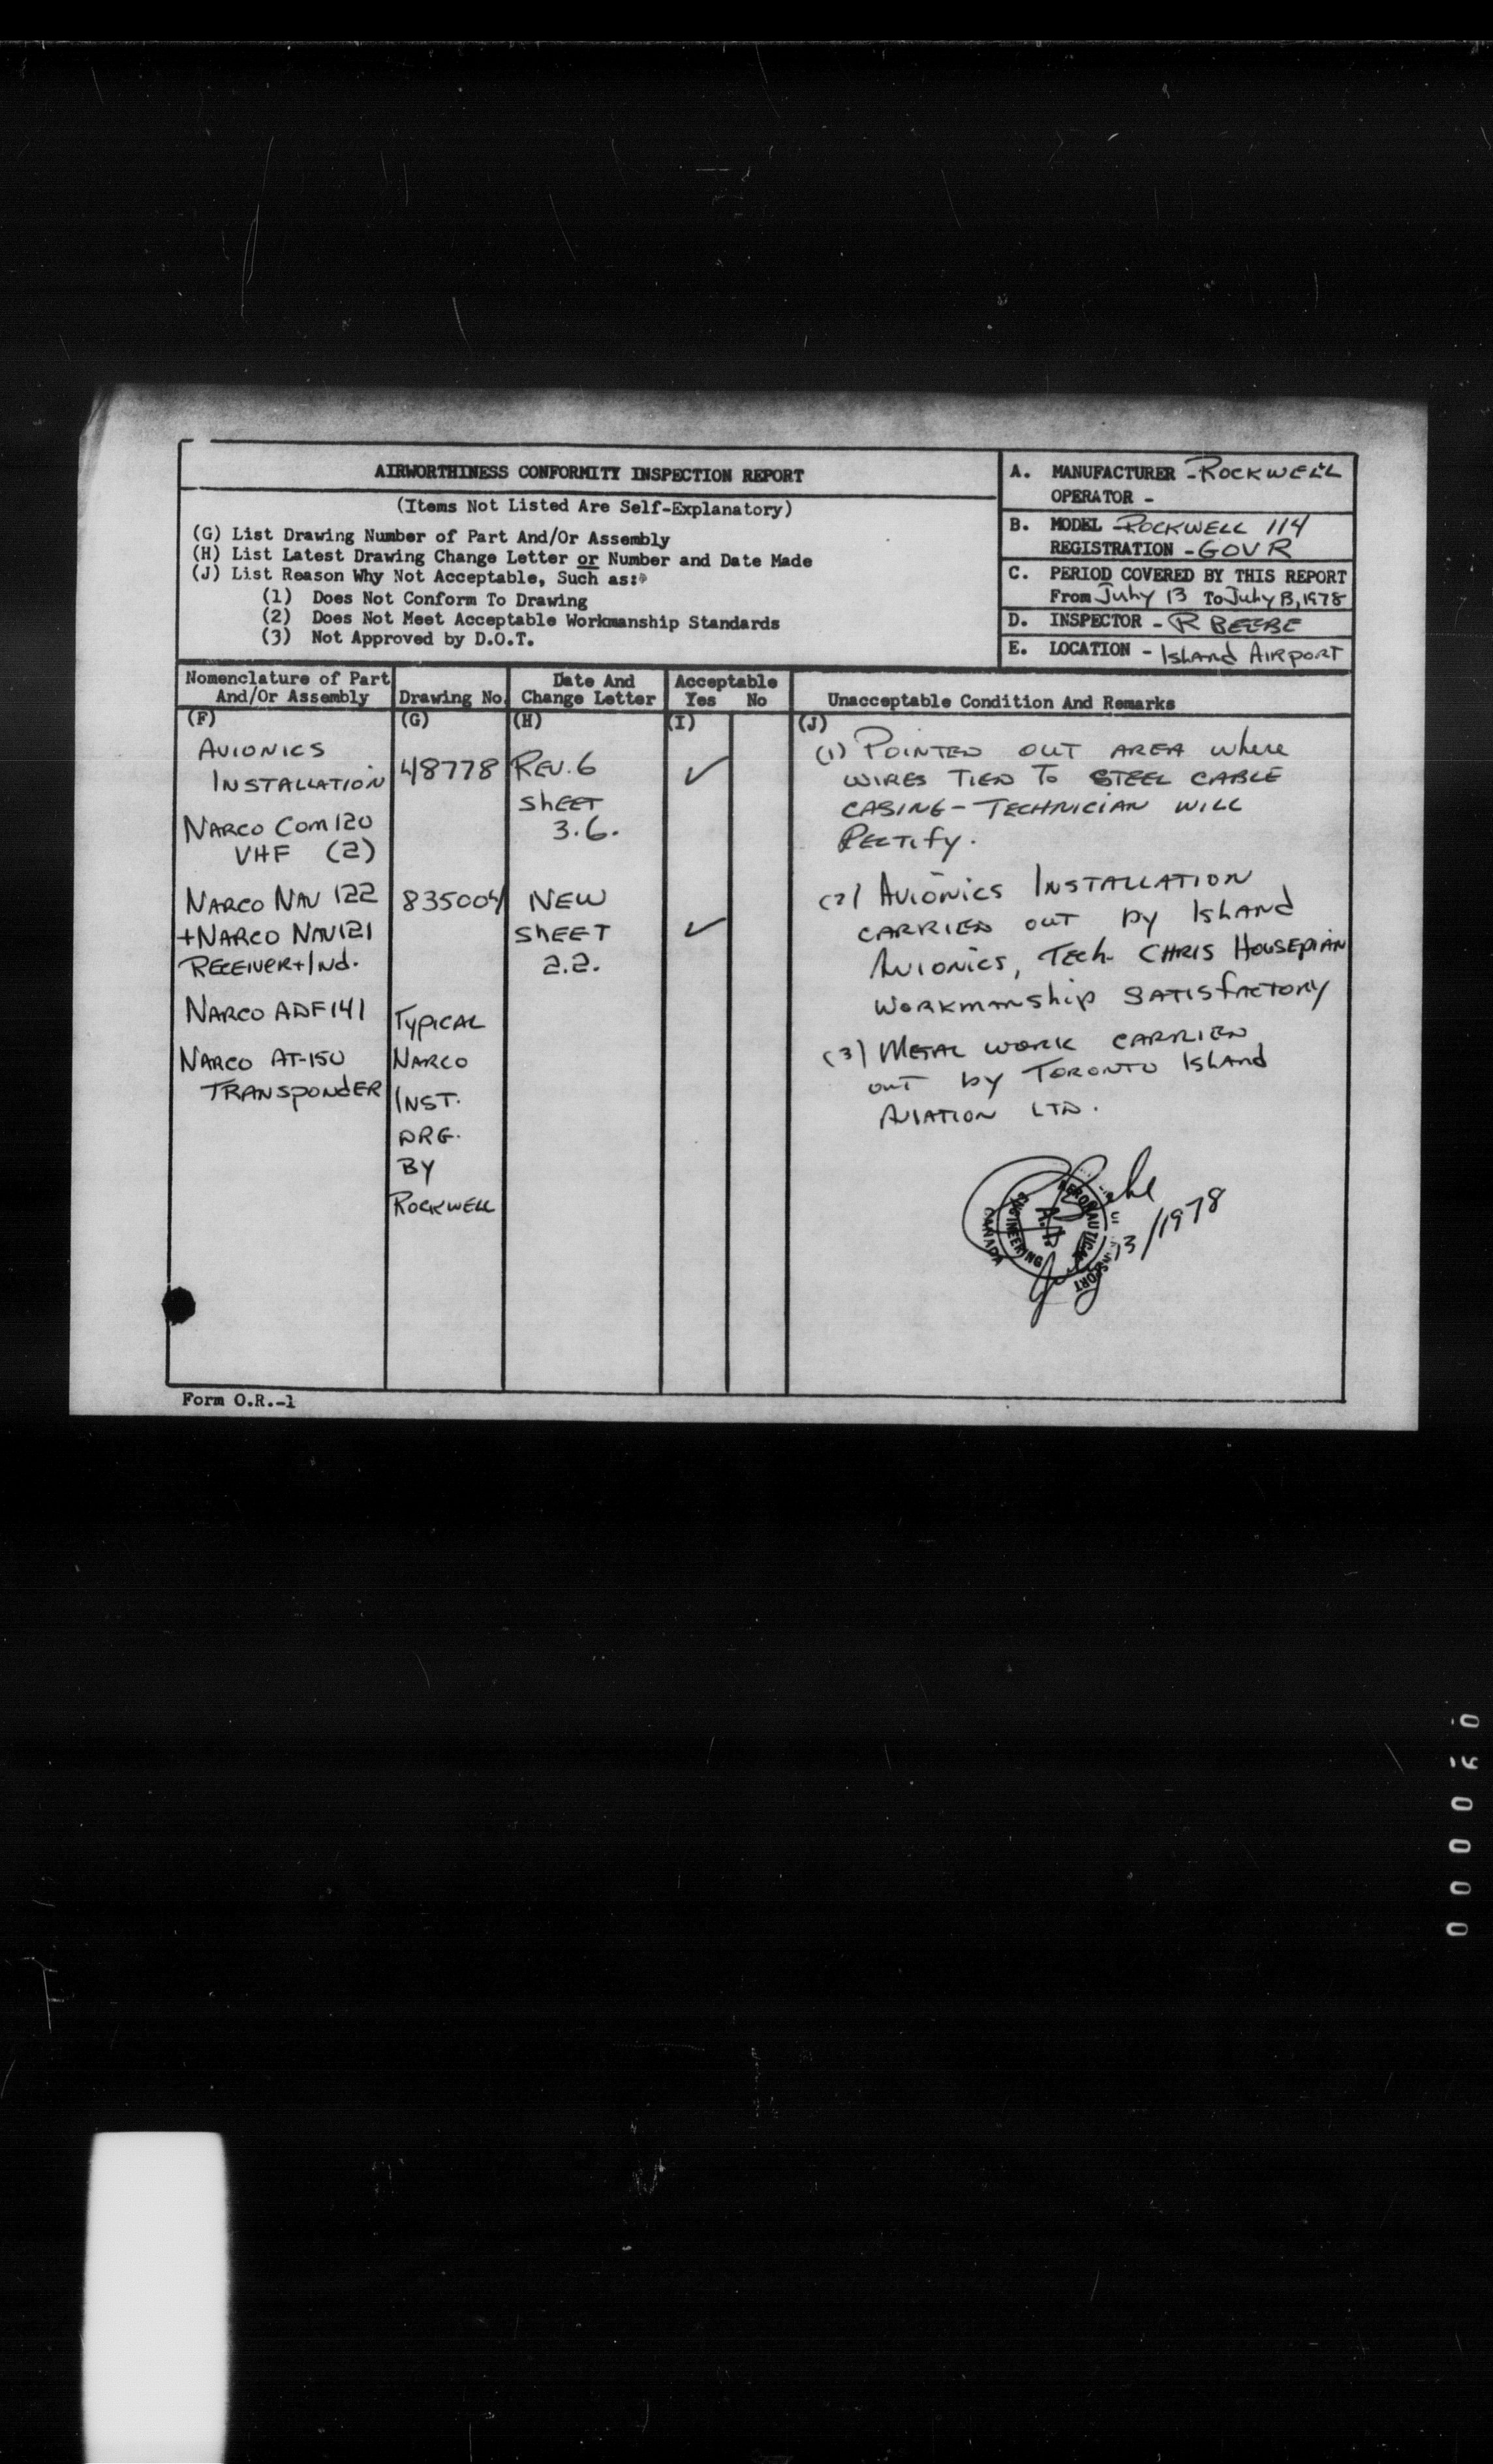 AIRWORTHINESS CONFORMITY INSPECTION REPORT
(Items Not Listed Are Self-Explanatory)
(G) List Drawing Number of Part And/Or Assembly
(H) List Latest Drawing Change Letter or Number and Date Made
(J) List Reason Why Not Acceptable, Such as:
(1) Does Not Conform To Drawing
(2) Does Not Meet Acceptable Workmanship Standards
(3) Not Approved by D.O.T.
A. MANUFACTURER - ROCKWELL
OPERATOR -
B. MODEL - ROCKWELL 114
REGISTRATION - GOVR
C. PERIOD COVERED BY THIS REPORT
From July 13 To July 13, 1978
D. INSPECTOR - R BEEBE
E. LOCATION - ISLAND AIRPORT
Nomenclature of Part
And/Or Assembly
Drawing No.
Date And
Change Letter
Acceptable
Yes No
Unacceptable Condition And Remarks
(F)
AVIONICS
INSTALLATION
NARCO COM 120
VHF (2)
NARCO NAV 122
+NARCO NAV 121
RECEIVER + IND.
NARCO ADF 141
NARCO AT-150
TRANSPONDER
(G)
48778
835004
TYPICAL
NARCO
INST.
DRG.
BY
ROCKWELL
(H)
REV. 6
SHEET
3.6.
NEW
SHEET
2.2.
(I)
✓
✓
(J)
(1) POINTED OUT AREA where
WIRES TIED TO STEEL CABLE
CASING - TECHNICIAN WILL
RECTIFY.
(2) AVIONICS INSTALLATION
CARRIED OUT by ISLAND
AVIONICS, TECH. CHRIS HOUSEPIAN
WORKMANSHIP SATISFACTORY
(3) METAL WORK CARRIED
OUT by TORONTO ISLAND
AVIATION LTD.
R Beebe
AERONAUTICAL
ENGINEERING
CANADA
July 13/1978
Form O.R.-1
000060